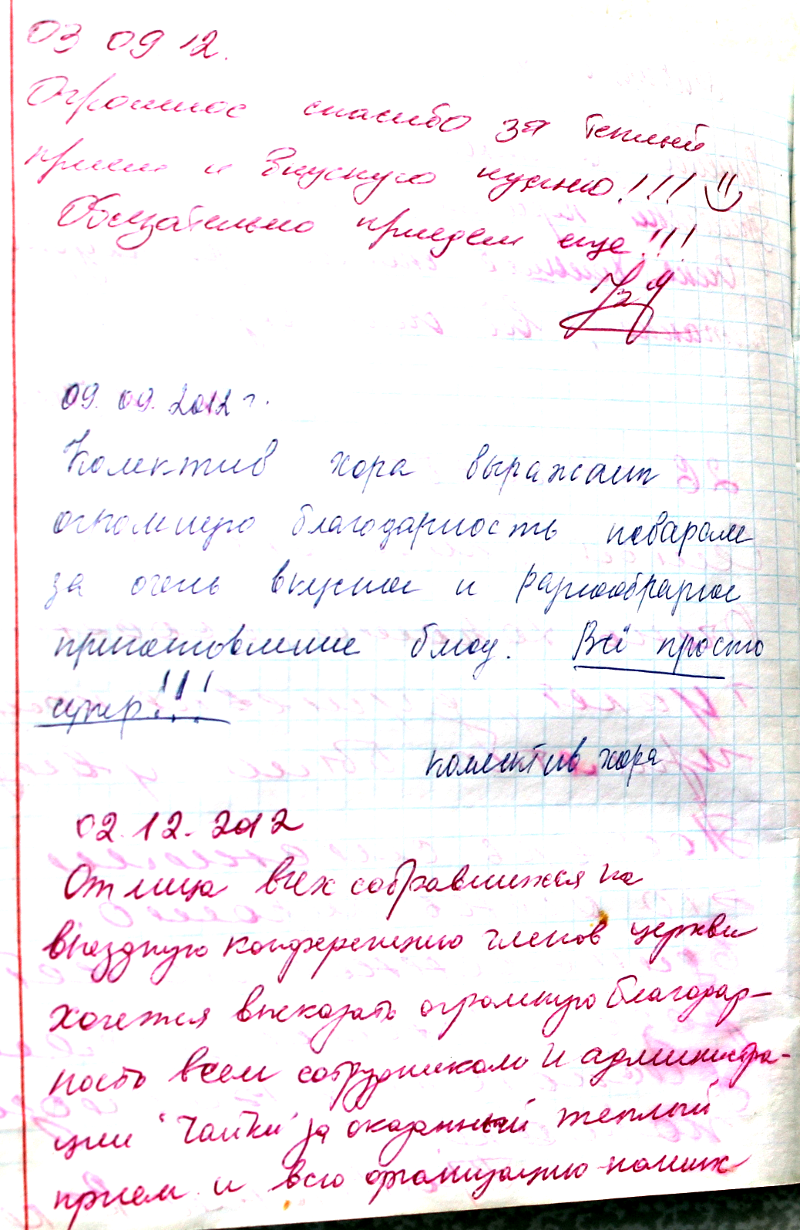 03 09 12.
Огромное спасибо за теплый
прием и вкусную кухню!!!
Обязательно приедем еще!!!
09.09.2012 г.
Колектив хора выражает
огромную благодарность поварам
за очень вкусное и разнообразное
приготовление блюд. Всё просто
супер!!!
коллектив хора
02.12.2012
От лица всех собравшихся на
выездную конференцию членов церкви
хочется высказать огромную благодар-
ность всем сотрудникам и администра-
ции "Чайки" за оказанный теплый
прием и всю организацию наших